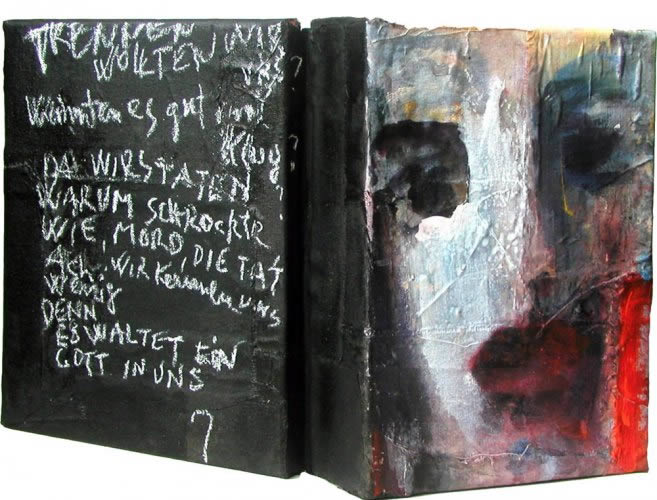 TRENNEN WIR
WOLTEN
UNS ?
Wähnten es gut und
klug ?
DA WIRS TATEN ,
WARUM SCHROCKTE
WIE, MORD, DIE TAT
Ach, wir kennen uns
wenig
DENN
ES WALTET EIN
GOTT IN UNS
?